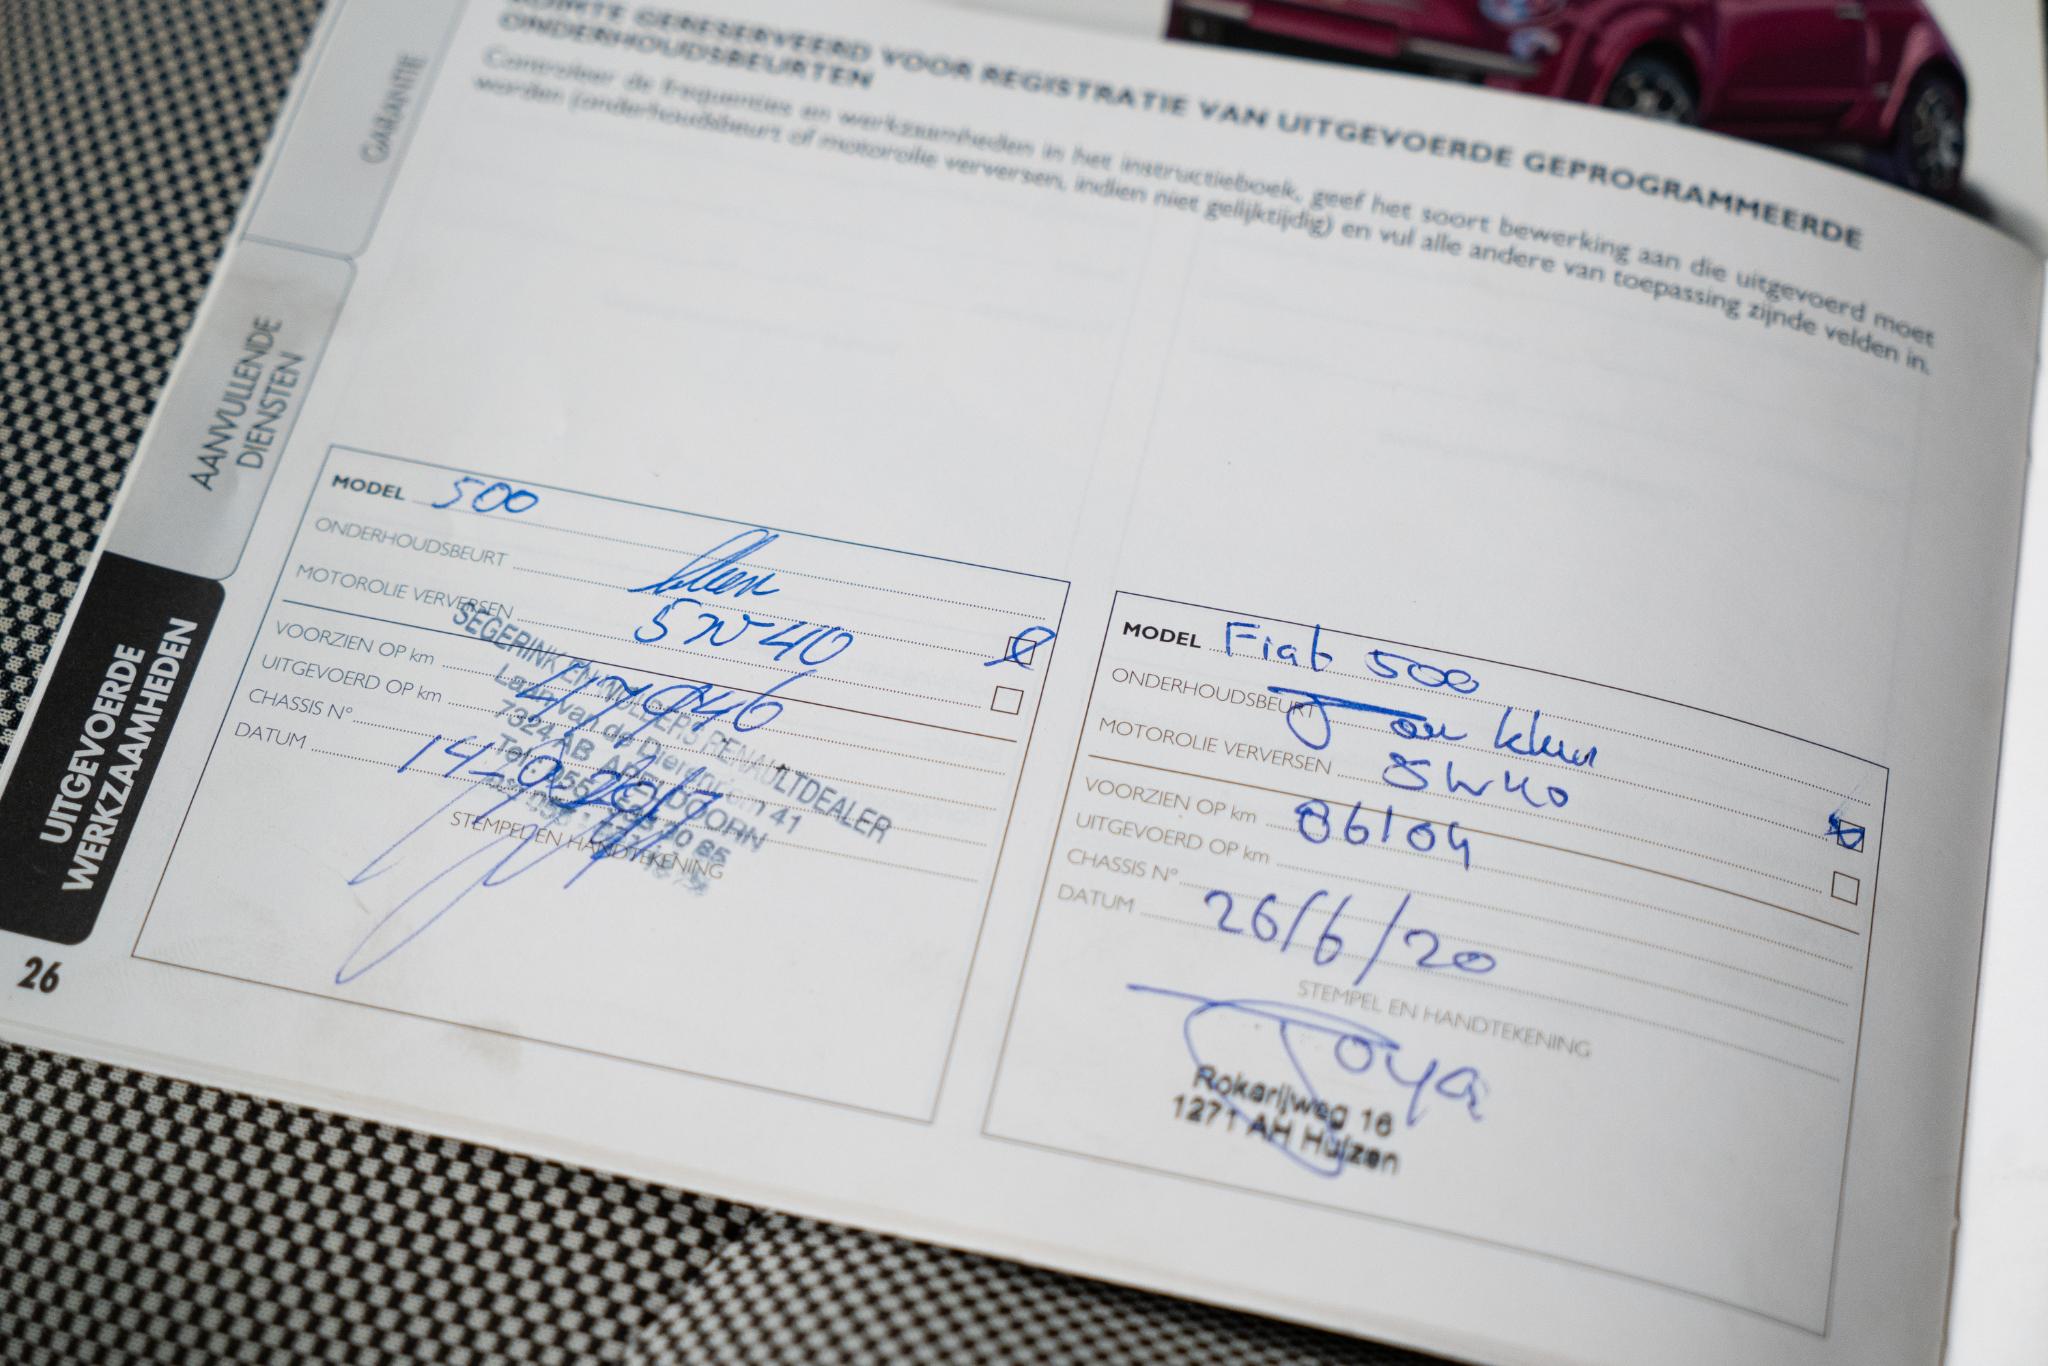 RUIMTE GERESERVEERD VOOR REGISTRATIE VAN UITGEVOERDE GEPROGRAMMEERDE
ONDERHOUDSBEURTEN
Controleer de frequenties en werkzaamheden in het instructieboek, geef het soort bewerking aan die uitgevoerd moet
worden (onderhoudsbeurt of motorolie verversen, indien niet gelijktijdig) en vul alle andere van toepassing zijnde velden in.
GARANTIE
AANVULLENDE
DIENSTEN
UITGEVOERDE
WERKZAAMHEDEN
26
MODEL 500
ONDERHOUDSBEURT
MOTOROLIE VERVERSEN 5W40
VOORZIEN OP km
UITGEVOERD OP km
CHASSIS N°
DATUM
STEMPEL EN HANDTEKENING
SEGERINK EN MULDERS RENAULTDEALER
Laan van de Dierenriem 41
7324 AB APELDOORN
MODEL Fiat 500
ONDERHOUDSBEURT
MOTOROLIE VERVERSEN 5W40
VOORZIEN OP km 86104
UITGEVOERD OP km
CHASSIS N°
DATUM 26/6/20
STEMPEL EN HANDTEKENING
Rokerijweg 16
1271 AH Huizen